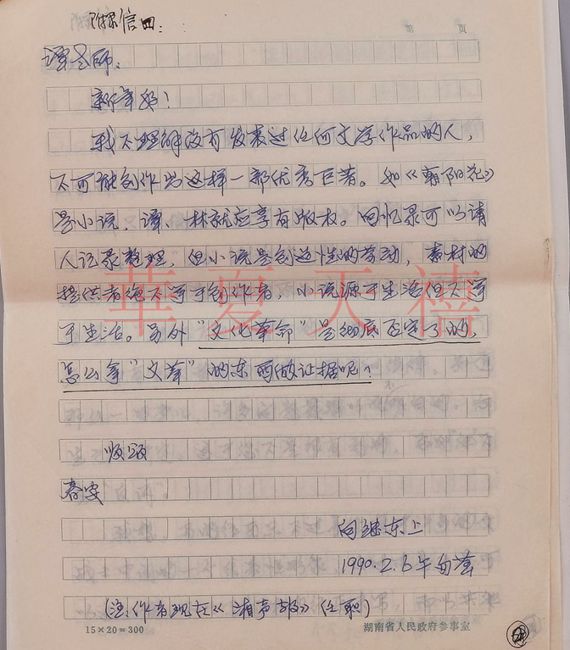 附录信四：
谭老师：
新年好！
我不理解没有发表过任何文学作品的人，
不可能创作出这样一部优秀巨著。如《朝阳花》
是小说，谭、林就应享有版权。回忆录可以请
人记录整理，但小说是创造性的劳动，素材的
提供者绝不等于创作者，小说源于生活但不等
于生活。另外“文化革命”是彻底否定了的，
怎么拿“文革”的东西做证据呢？
顺颂
春安
向继东上
1990.2.6午
（注：作者现在《湘声报》任职）
15×20=300
湖南省人民政府参事室
華夏天禧